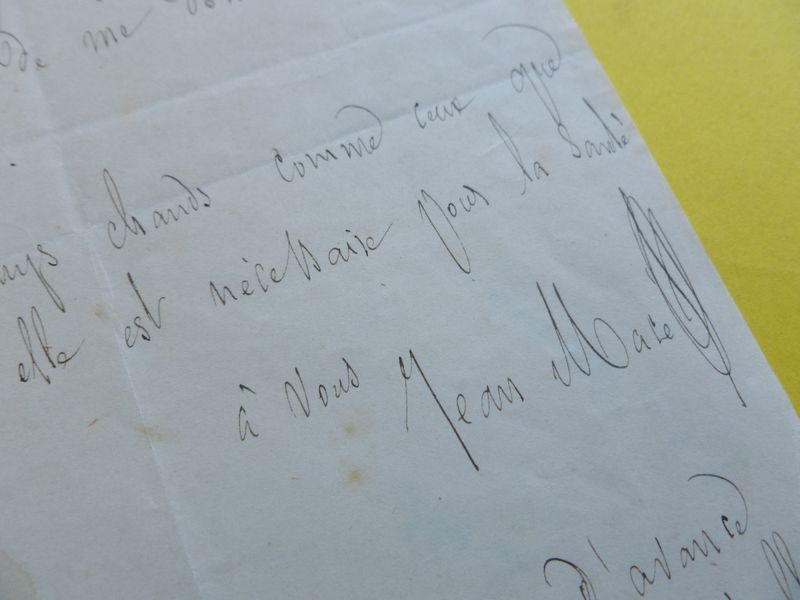 de me
chauds comme ceux que
elle est nécessaire pour la santé
à vous Jean Macé
d'avance